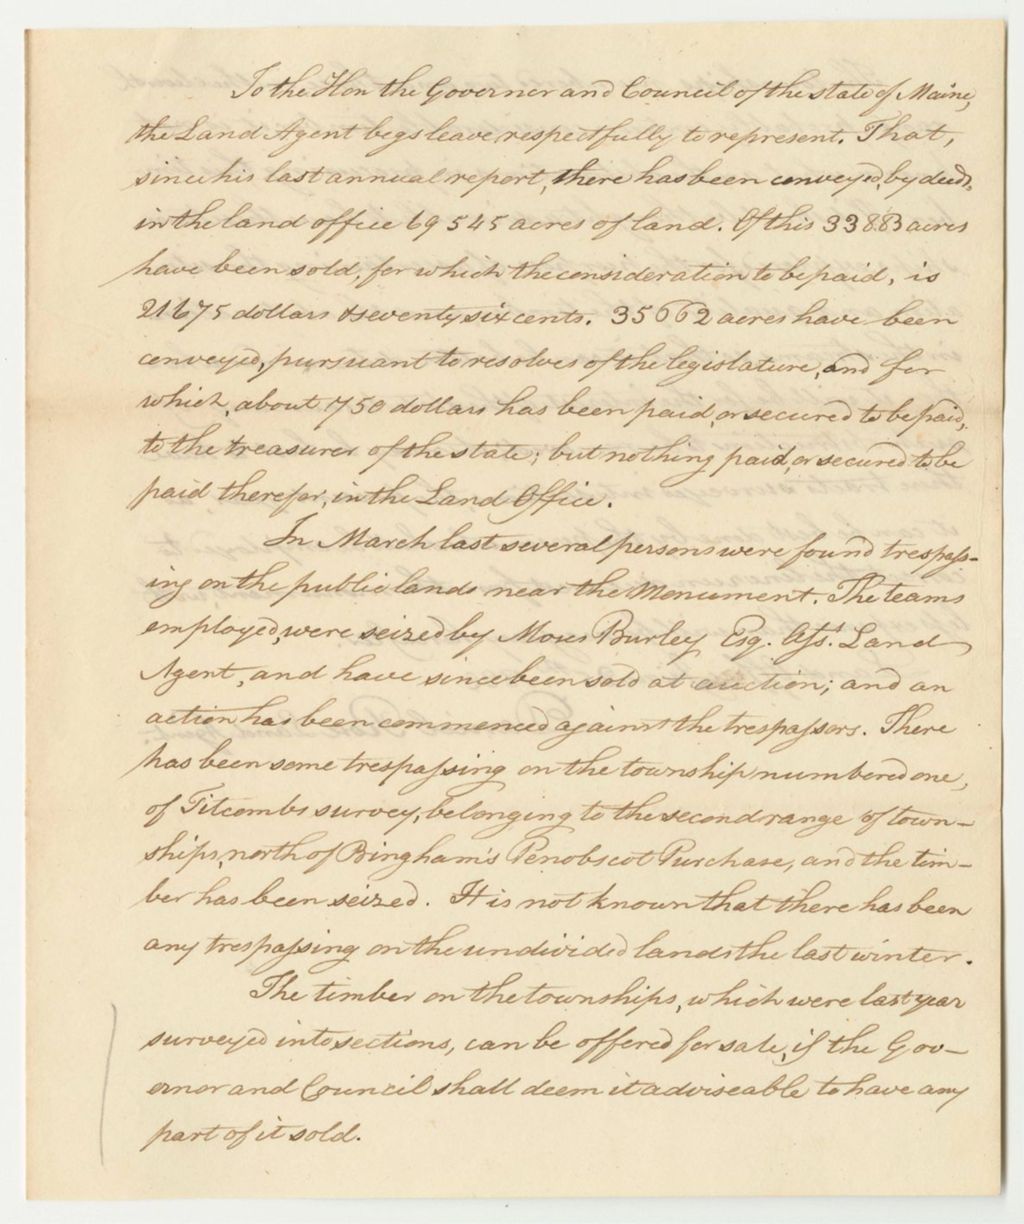 To the Hon the Governor and Council of the state of Maine,
the Land Agent begs leave respectfully to represent. That,
since his last annual report, there has been conveyed, by deeds,
in the land office 69 545 acres of land. Of this 33883 acres
have been sold, for which the consideration to be paid, is
21675 dollars & seventy six cents. 35662 acres have been
conveyed, pursuant to resolves of the legislature, and for
which, about 750 dollars has been paid, or secured to be paid,
to the treasurer of the state; but nothing paid, or secured to be
paid therefor, in the Land Office.
In March last several persons were found trespass-
ing on the public lands near the Monument. The teams
employed, were seized by Moses Burley Esq. Asst. Land
Agent, and have since been sold at auction; and an
action has been commenced against the trespassors. There
has been some trespassing on the township numbered one,
of Titcombs survey, belonging to the second range of town-
ships, north of Bingham's Penobscot Purchase, and the tim-
ber has been seized. It is not known that there has been
any trespassing on the undivided lands the last winter.
The timber on the townships, which were last year
surveyed into sections, can be offered for sale, if the Gov-
ernor and Council shall deem it adviseable to have any
part of it sold.